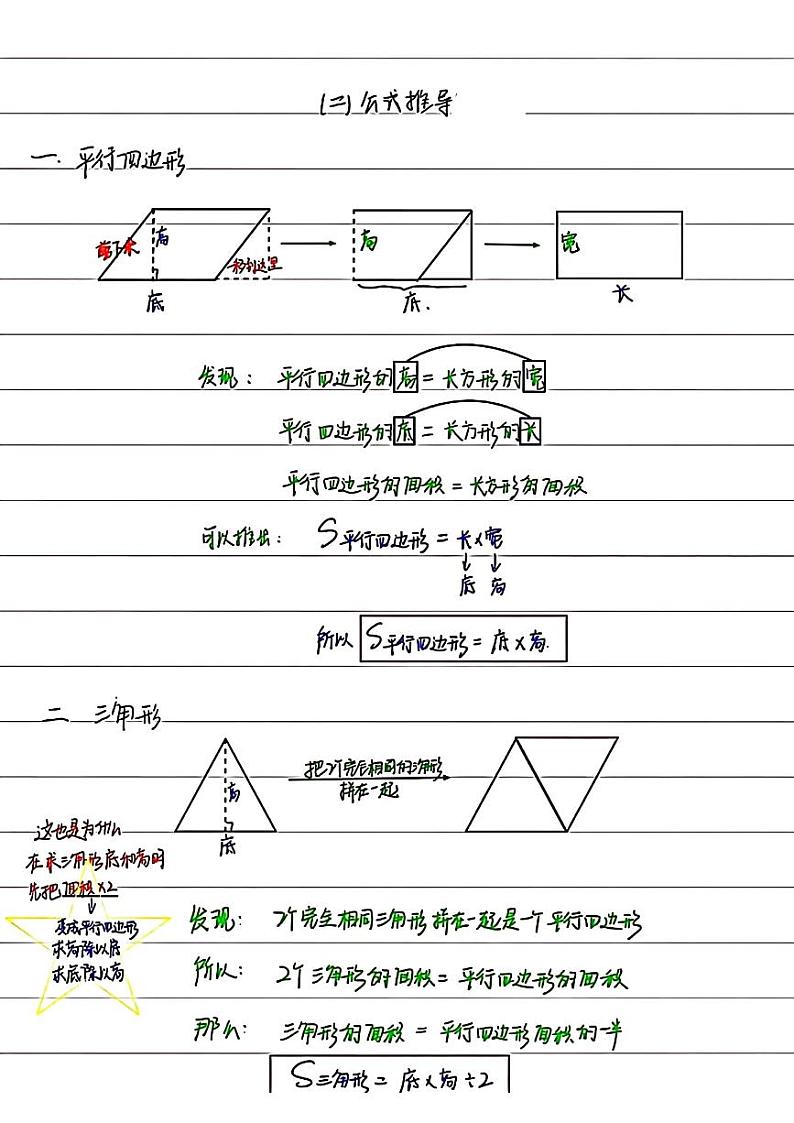 (二)公式推导
一. 平行四边形
剪下来 高 移到这里 底
高 底.
宽 长
发现: 平行四边形的高=长方形的宽
平行四边形的底=长方形的长
平行四边形的面积=长方形的面积
可以推出: S平行四边形=长×宽
↓ ↓
底 高
所以 S平行四边形= 底×高.
二 三角形
高 底
把2个完全相同的三角形
拼在一起
这也是为什么
在求三角形底和高时
先把面积×2
↓
变成平行四边形
求高除以底
求底除以高
发现: 2个完全相同三角形拼在一起是一个平行四边形
所以: 2个三角形的面积=平行四边形的面积
那么: 三角形的面积=平行四边形面积的一半
S三角形= 底×高÷2